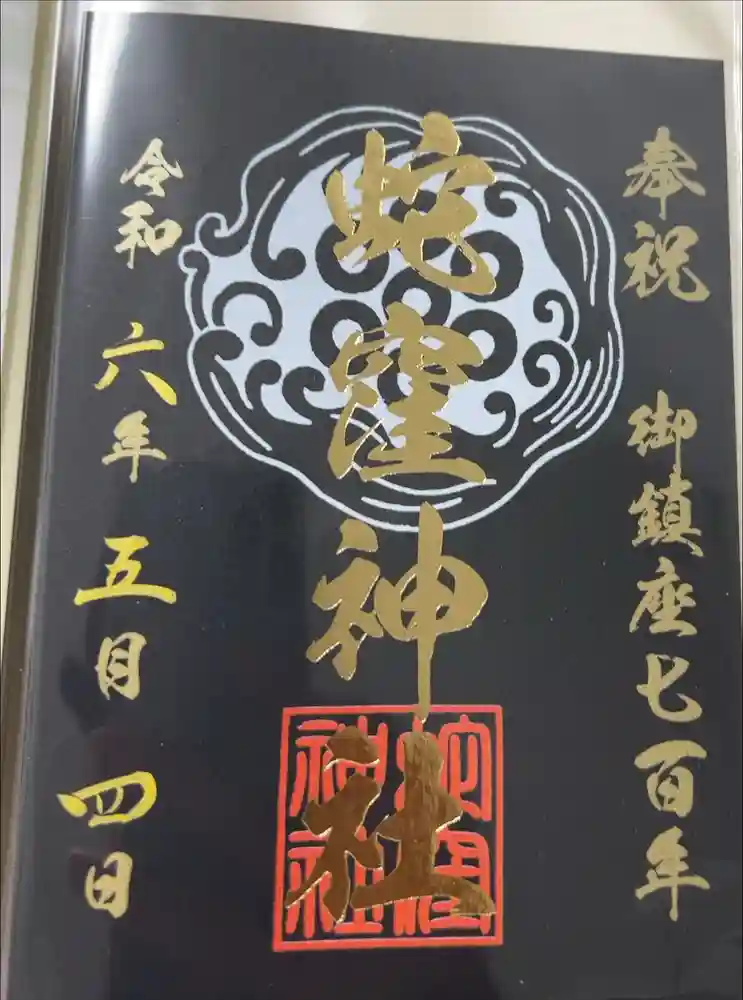 奉祝 御鎮座七百年
蛇窪神社
蛇窪神社
令和六年五月四日